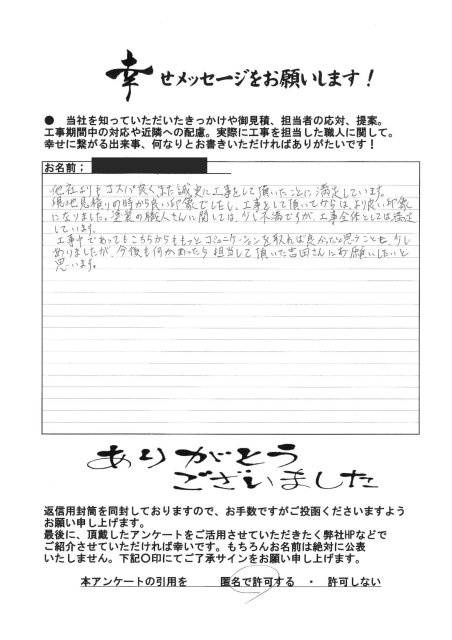 幸せメッセージをお願いします！
● 当社を知っていただいたきっかけや御見積、担当者の応対、提案。
工事期間中の対応や近隣への配慮。実際に工事を担当した職人に関して。
幸せに繋がる出来事、何なりとお書きいただければありがたいです！
お名前；
他社よりもコスパ良くまた誠実に工事をして頂いたことに満足しています。
現地見積りの時から良い印象でしたし、工事をして頂いてからは、より良い印象
になりました。塗装の職人さんに関しては、少し不満ですが、工事全体としては満足
しています。
工事中であってもこちらからももっとコミュニケーションを取れば良かったと思うことも、少し
ありましたが、今後も何かあったら担当して頂いた吉田さんにお願いしたいと
思います。
ありがとう
ございました
返信用封筒を同封しておりますので、お手数ですがご投函くださいますよう
お願い申し上げます。
最後に、頂戴したアンケートをご活用させていただきたく弊社HPなどで
ご紹介させていただければ幸いです。もちろんお名前は絶対に公表
いたしません。下記〇印にてご了承サインをお願い申し上げます。
本アンケートの引用を 匿名で許可する ・ 許可しない